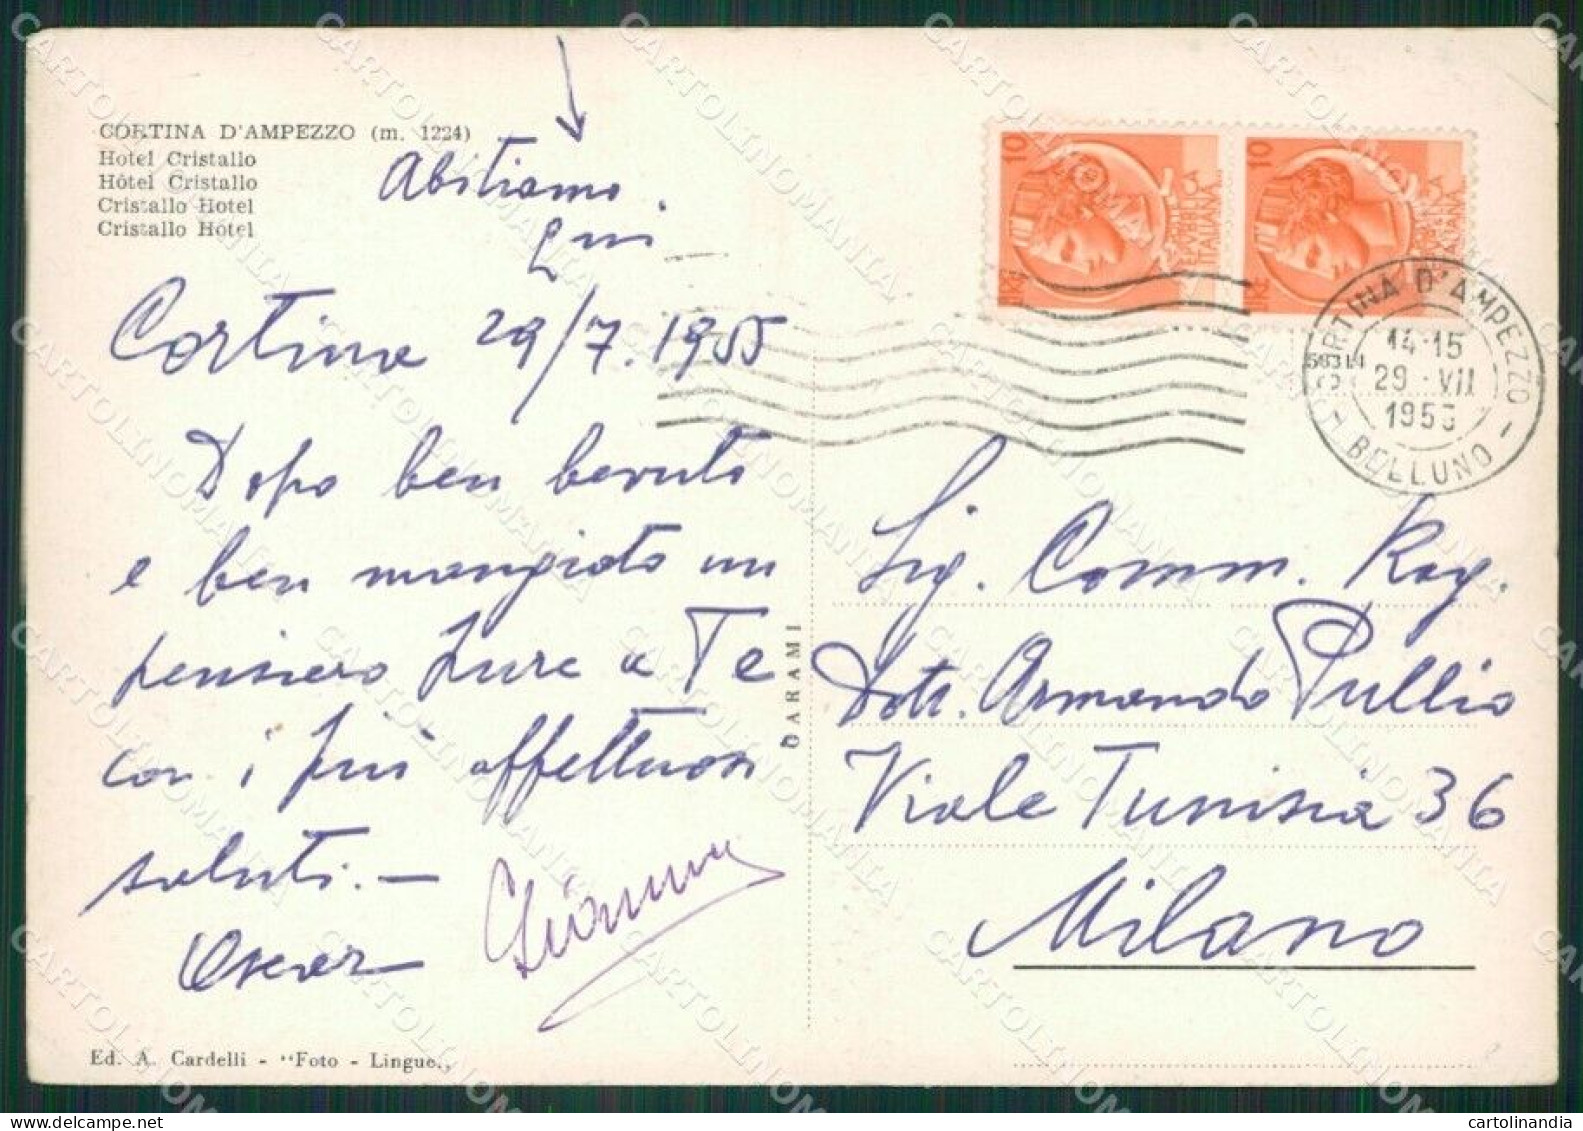 CORTINA D'AMPEZZO (m. 1224)
Hotel Cristallo
Hôtel Cristallo
Cristallo Hotel
Cristallo Hotel
Abitiamo
qui
Cortina 29/7.1955
Dopo ben bevuto
e ben mangiato un
pensiero pure a Te
con i più affettuosi
saluti. —
Oscar
Gianna
Ed. A. Cardelli - "Foto - Lingue"
CARAMI
10 LIRE REPUBBLICA ITALIANA
10 LIRE REPUBBLICA ITALIANA
CORTINA D'AMPEZZO
14-15
29 · VII
1955
BELLUNO
Sig. Comm. Rag.
Dott. Armando Pullio
Viale Tunisia 36
Milano
CARTOLINOMANIA
cartolinandia